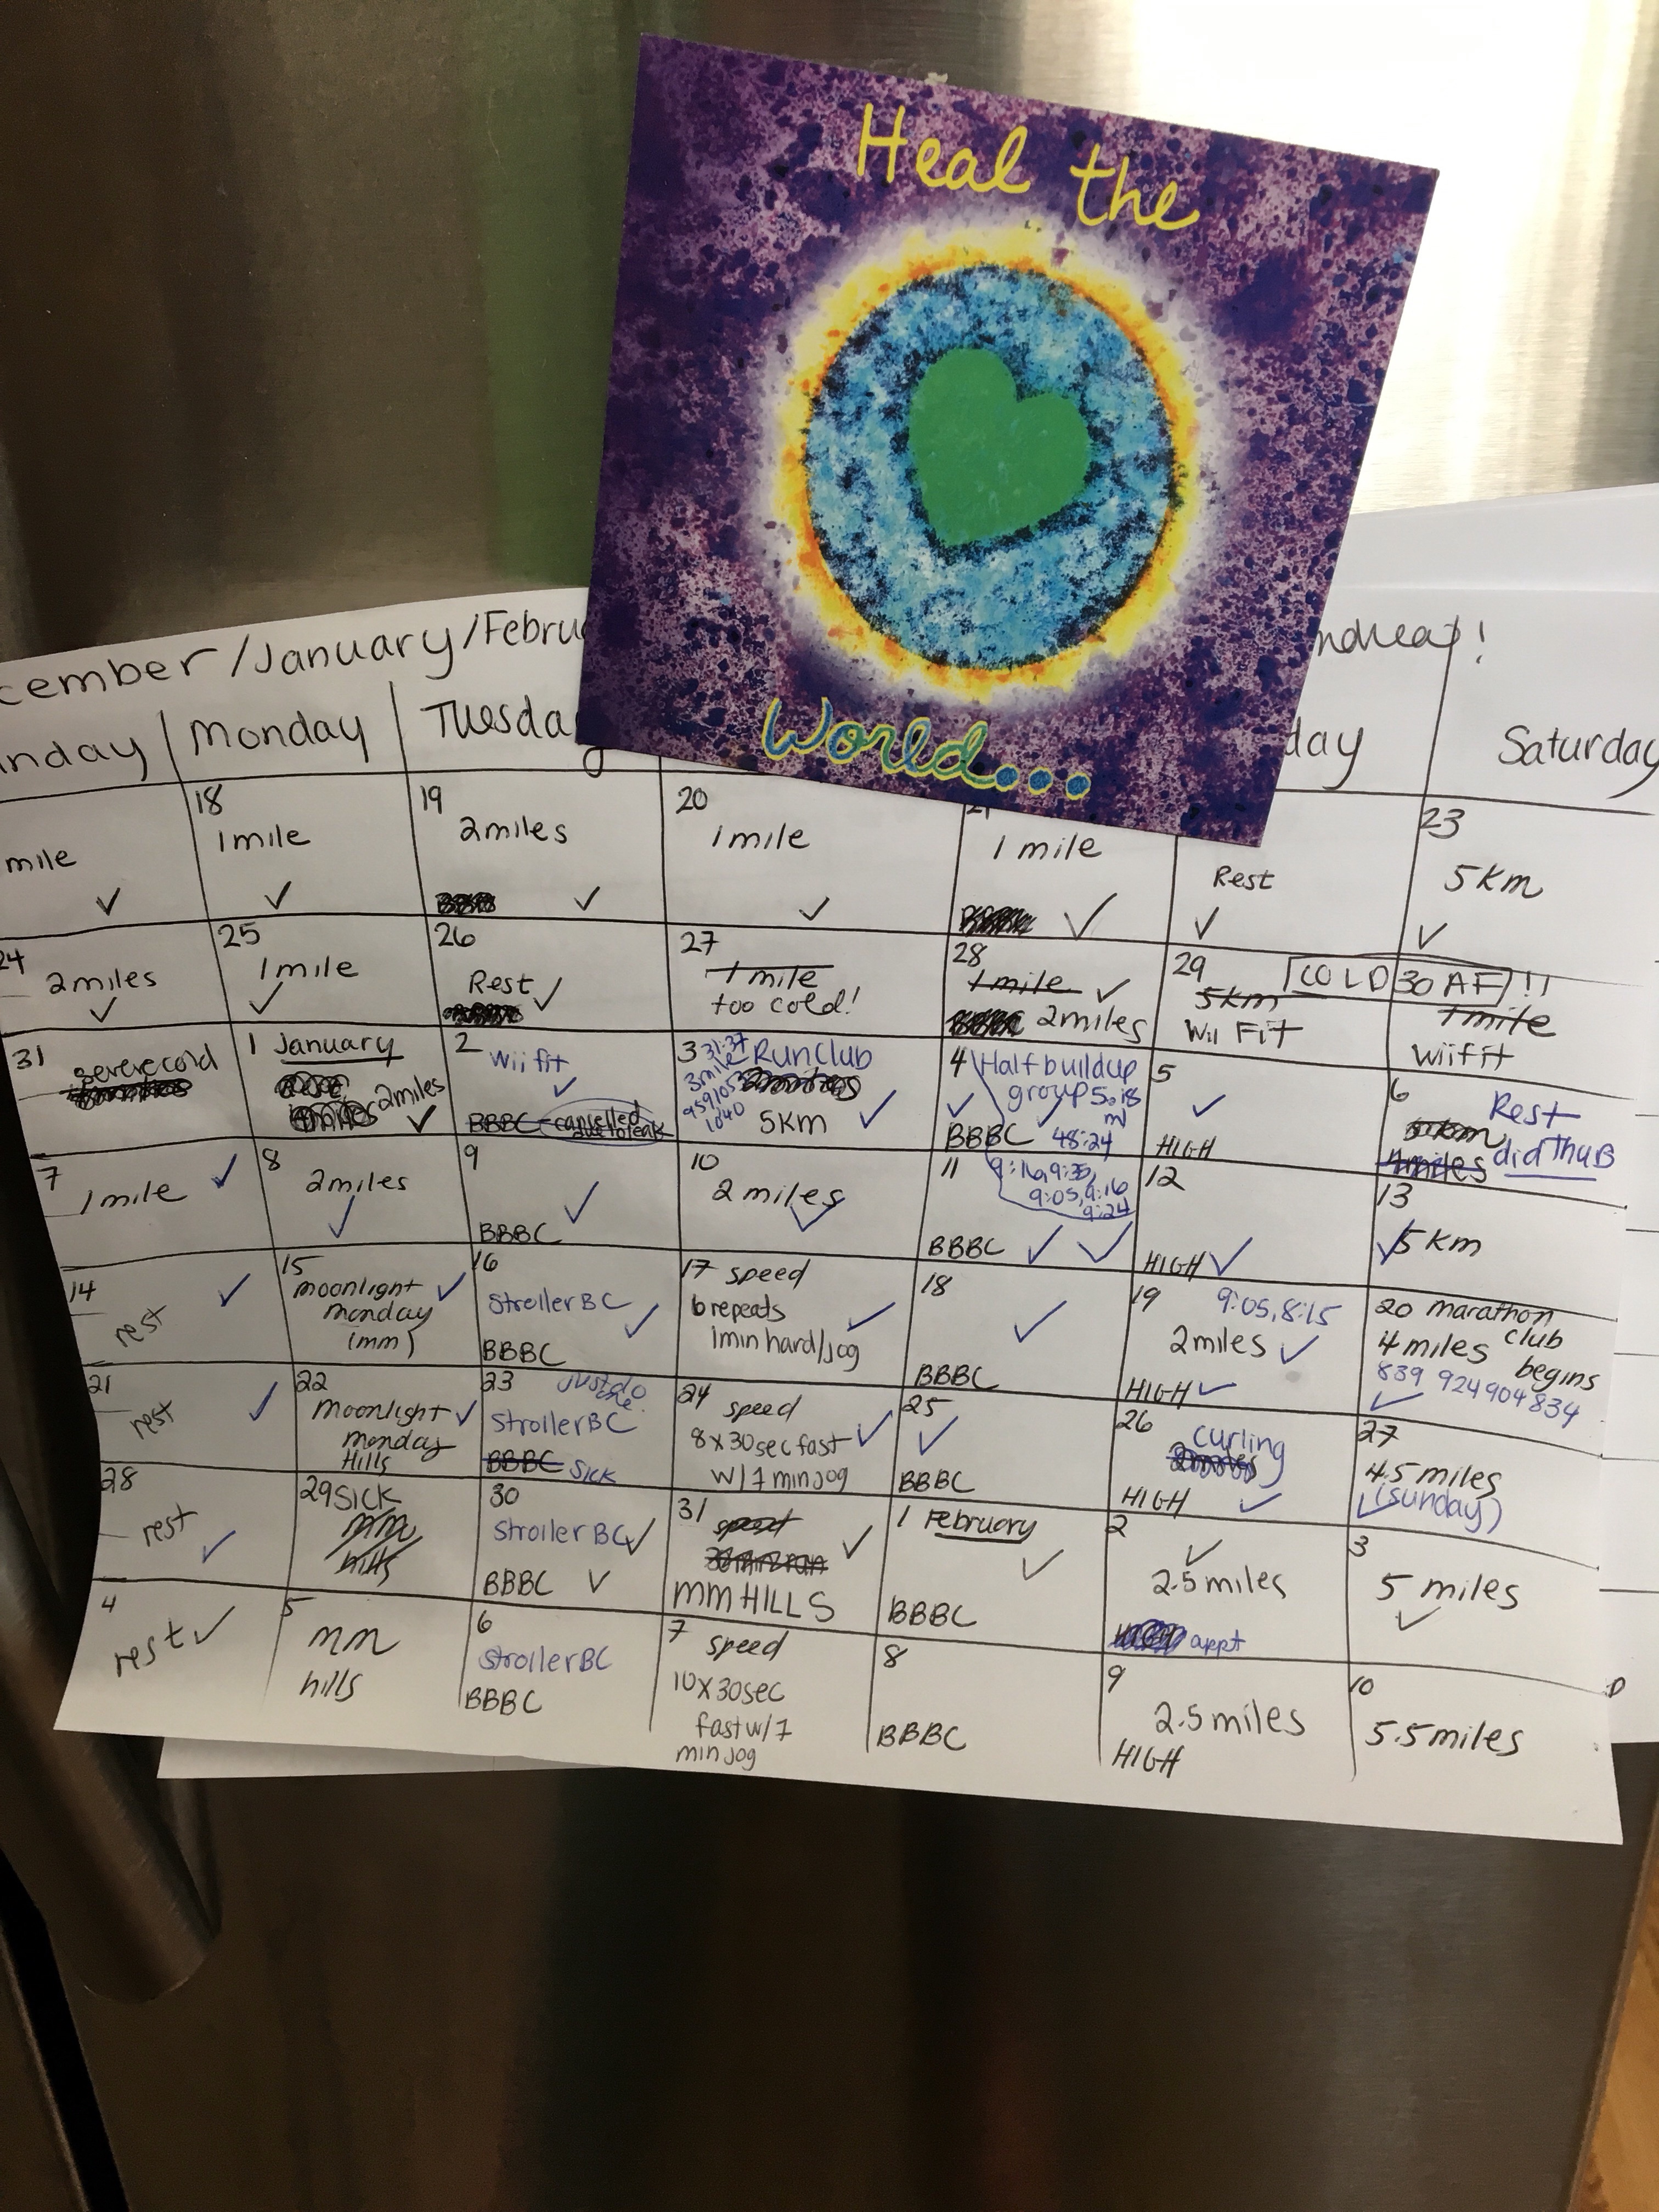 Heal the
World...
cember/January/Febru
ndrea!
nday
Monday
Tuesday
day
Saturday
mile ✓
18
1 mile
✓
19
2 miles
✓
20
1 mile
✓
21
1 mile
✓
Rest
✓
23
5 Km
✓
24
2 miles
✓
25
1 mile
✓
26
Rest ✓
27
1 mile
too cold!
28
1 mile ✓
2 miles
29
COLD AF!!
5km
Wii Fit
30
1 mile
wii fit
31
severe cold
1 January
2 miles
✓
2
Wii fit
✓
BBBC cancelled
due to leak
3 31:37 Run Club
3 mile
5km ✓
1040
4 Half buildup
group 5.18
✓ ✓ ml
BBBC 48:24
9:16, 9:35,
9:05, 9:16
9:24
5
✓
HIGH
6
Rest
5km
4 miles did Thurs
7
1 mile ✓
8
2 miles
✓
9
✓
BBBC
10
2 miles
✓
11
BBBC ✓ ✓
12
HIGH ✓
13
✓ 5 km
14
rest ✓
15
moonlight ✓
monday
(mm)
16
Stroller BC
✓
BBBC
17 speed
6 repeats ✓
1 min hard/jog
18
✓
BBBC
19 9:05, 8:15
2 miles ✓
HIGH ✓
20 marathon
club
4 miles
begins
839 924 904 834
✓
21
rest ✓
22
moonlight ✓
monday
Hills
23 just do
one.
Stroller BC
BBBC SICK
24
speed
8 x 30 sec fast ✓
w/ 1 min jog
25
✓
BBBC
26
curling
2 miles
HIGH ✓
27
4.5 miles
✓ (sunday)
28
rest
✓
29 SICK
mm
hills
30
Stroller BC ✓
BBBC ✓
31
speed ✓
30 min run
MM HILLS
1 February
✓
BBBC
2
✓
2.5 miles
appt
3
5 miles
✓
4
rest ✓
5
mm
hills
6
Stroller BC
BBBC
7
speed
10 x 30 sec
fast w/ 1
min jog
8
BBBC
9
2.5 miles
HIGH
10
5.5 miles